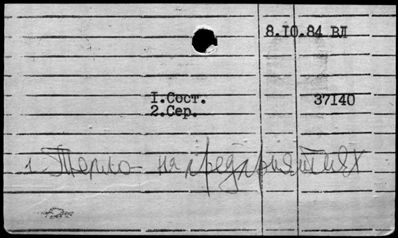 8.10.84 ВЛ
1.Сост. 37140
2.Сер.
1. Тепло на предприятиях